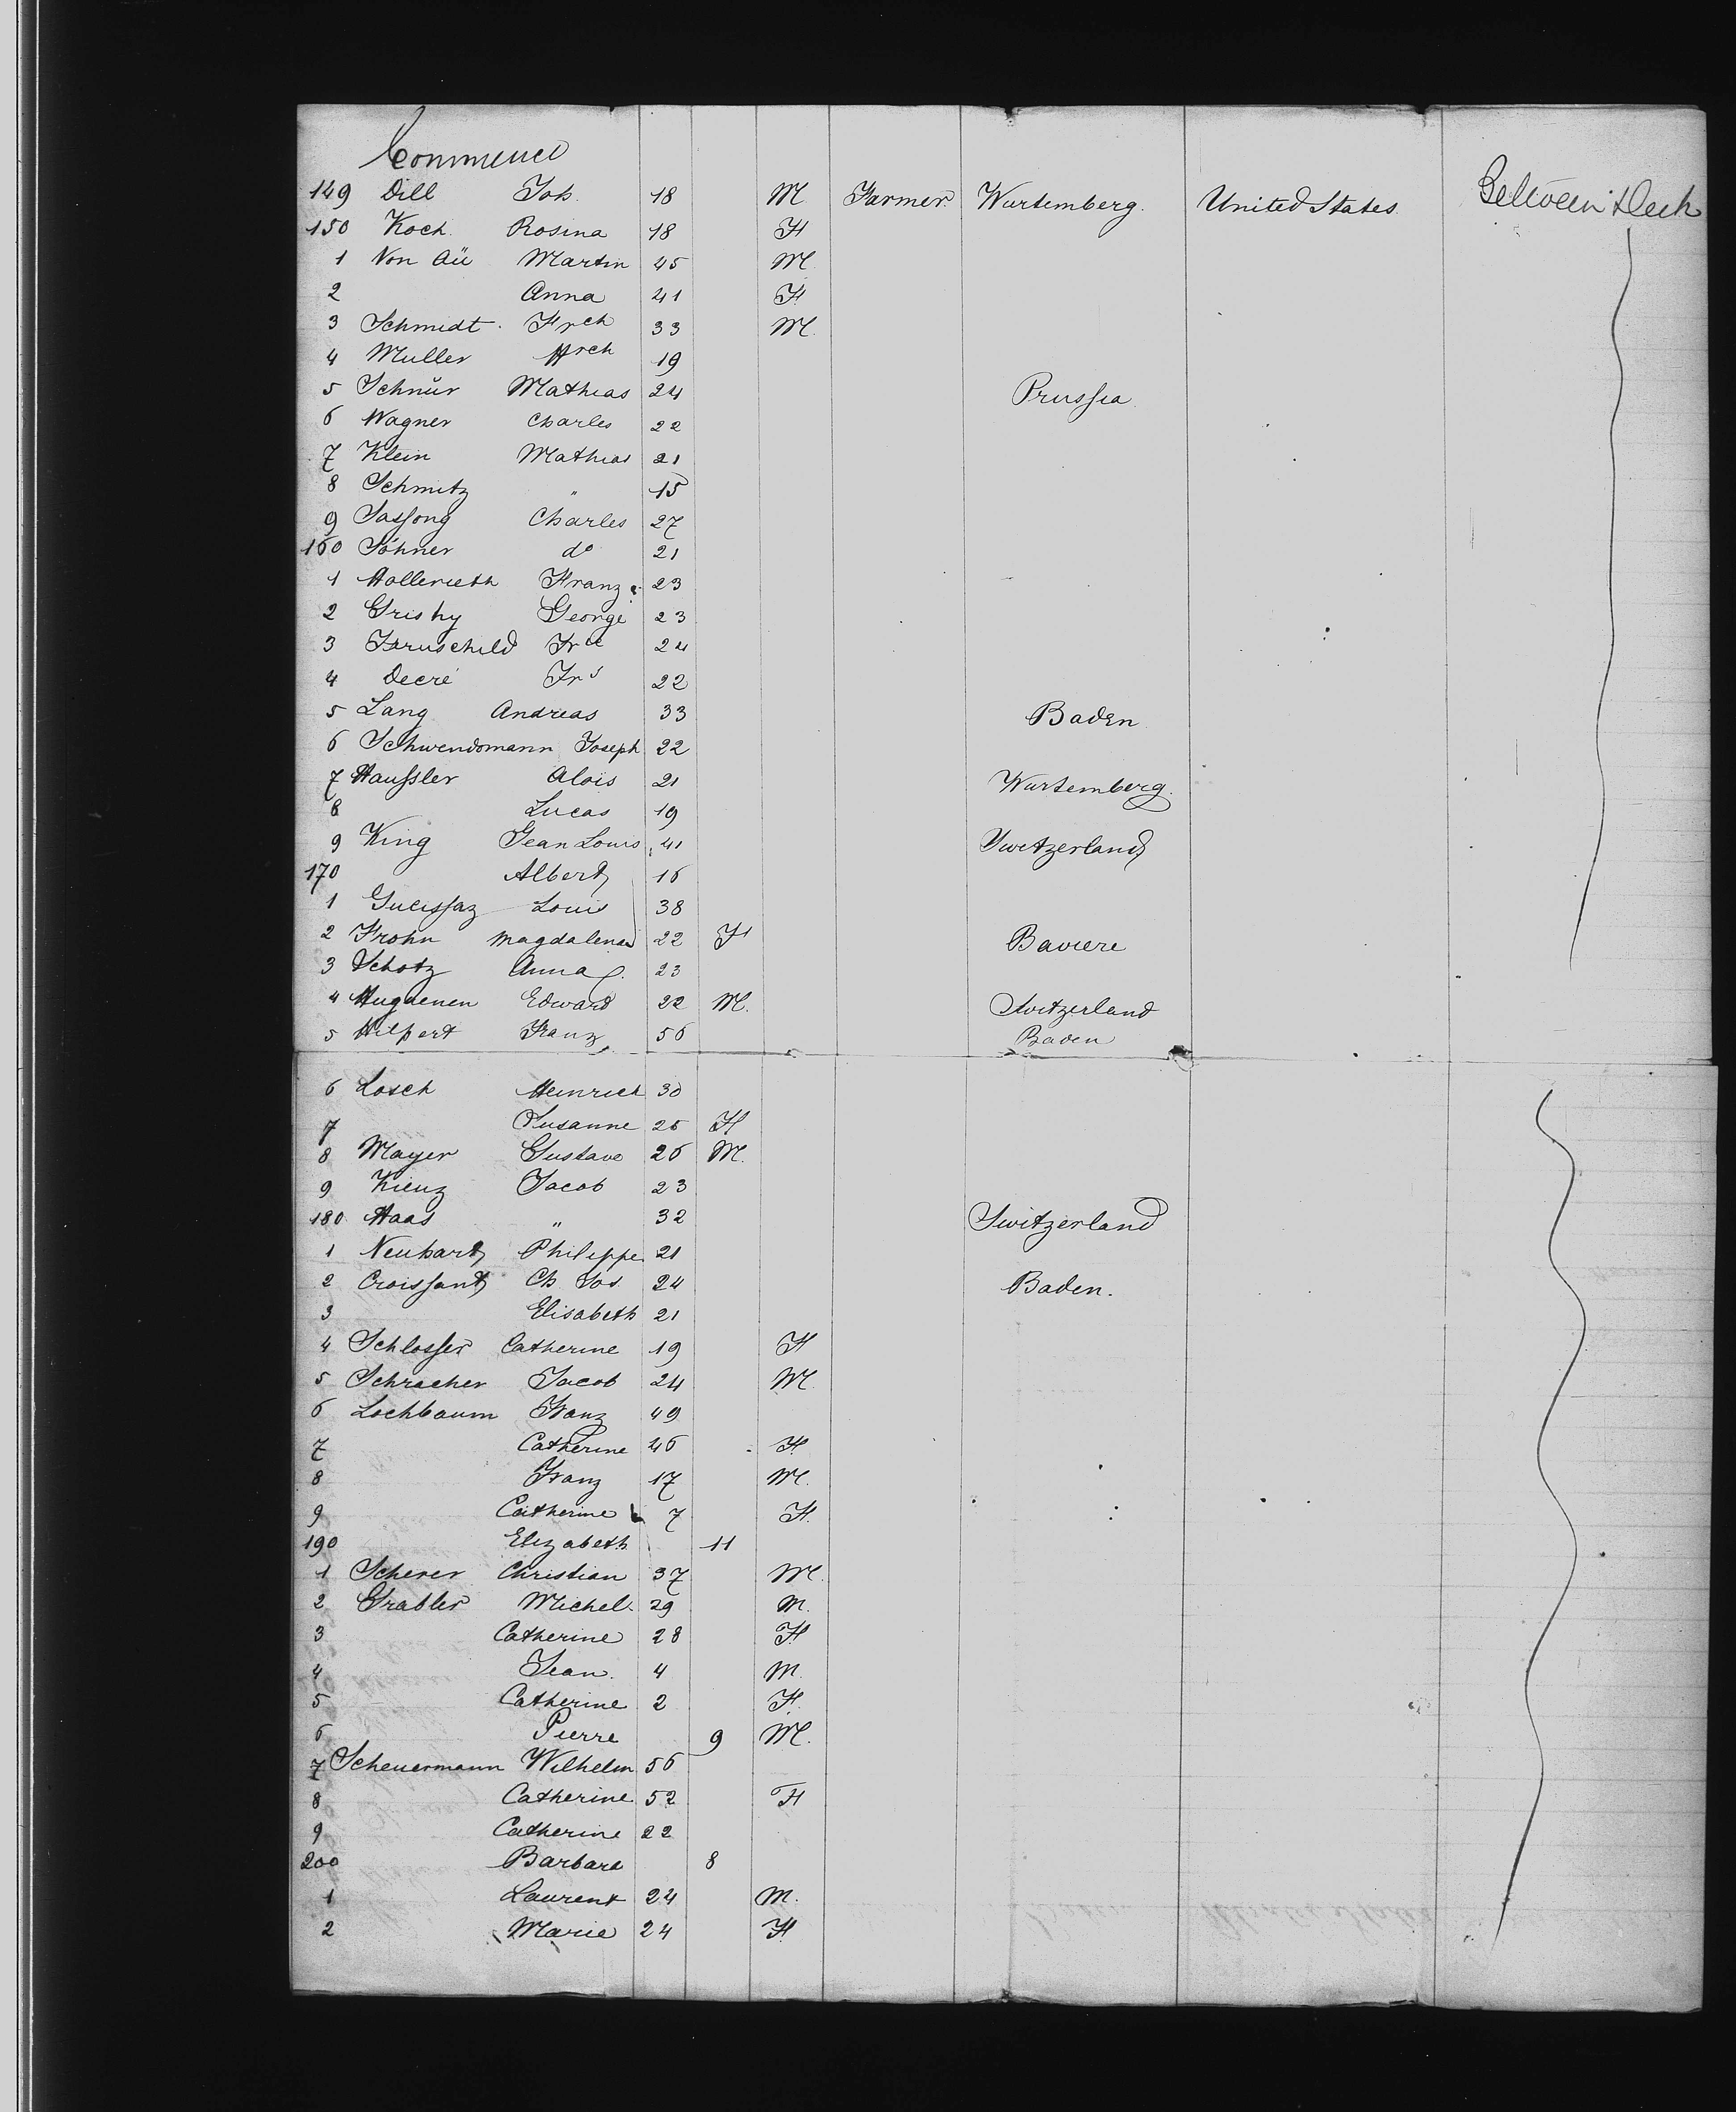 Commence
149 Dill Joh. 18 M Farmer Wurtemberg. United States Between Deck
150 Koch Rosina 18 F
1 Von Aü Martin 45 M
2 Anna 41 F
3 Schmidt Frch 33 M
4 Muller Hrch 19
5 Schnŭr Mathias 24 Prussia
6 Wagner Charles 22
7 Klein Mathias 21
8 Schmitz " 15
9 Sassong Charles 27
160 Söhner do 21
1 Hollerieth Franz 23
2 Grishy George 23
3 24
4 Decré Frs 22
5 Lang Andreas 33 Baden
6 Schwendomann Joseph 22
7 Haussler Alois 21 Wurtemberg.
8 Lucas 19
9 King Jean Louis 41 Switzerland
170 Albert 16
1 Louis 38
2 Frohn Magdalena 22 F Baviere
3 Schotz Anna 23
4 Huguenen Edward 22 M. Switzerland
5 Hilpert Franz 56 Baden
6 Losch Heinrich 30
7 Susanne 25 F
8 Mayer Gustave 26 M.
9 Kienz Jacob 23
180 Haas " 32 Switzerland
1 Neuhart Philippe 21
2 Croissant Ch Jos 24 Baden.
3 Elisabeth 21
4 Schlosser Catherine 19 F
5 Schracher Jacob 24 M
6 Lochbaum Franz 49
7 Catherine 46 F
8 Franz 17 M.
9 Catherine 7 F.
190 Elizabeth 11
1 Scherer Christian 37 M.
2 Grabler Michel 29 M.
3 Catherine 28 F
4 Jean. 4 M.
5 Catherine 2 F.
6 Pierre 9 M.
7 Scheuermann Wilhelm 56
8 Catherine 52 F
9 Catherine 22
200 Barbara 8
1 Laurent 24 M.
2 Marie 24 F